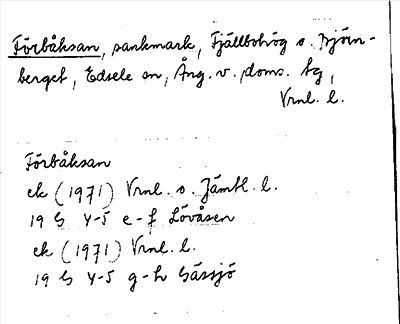 Förbåksan, sankmark, Fjällbohög o. Björn-
berget, Edsele sn, Ång. v. doms. bg,
Vrnl. l.
Förbåksan
ek (1971) Vrnl. o. Jämtl. l.
19 G 4-5 e-f Lövåsen
ek (1971) Vrnl. l.
19 G 4-5 g-h Gåssjö